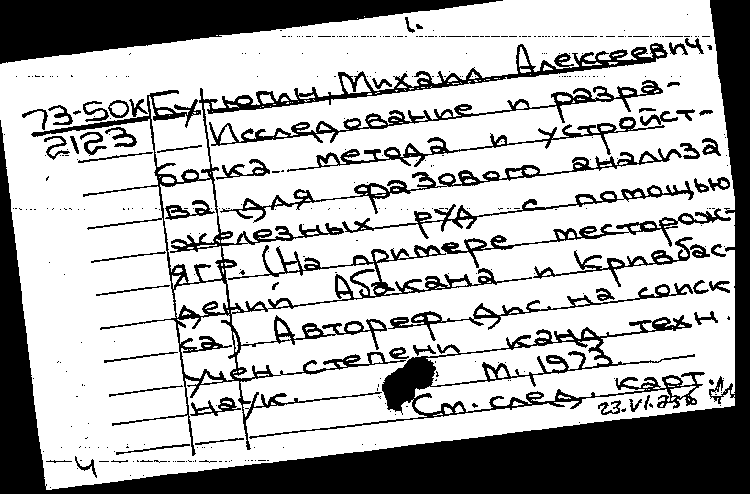 1.
73-50К Бутюгин, Михаил Алексеевич.
2123
Исследование и разра-
ботка метода и устройст-
ва для фазового анализа
железных руд с помощью
ЯГР. (На примере месторож-
дений Абакана и Кривбас-
са). Автореф. дис. на соиск.
учен. степени канд. техн.
наук. М., 1973.
См. след. карт.
4